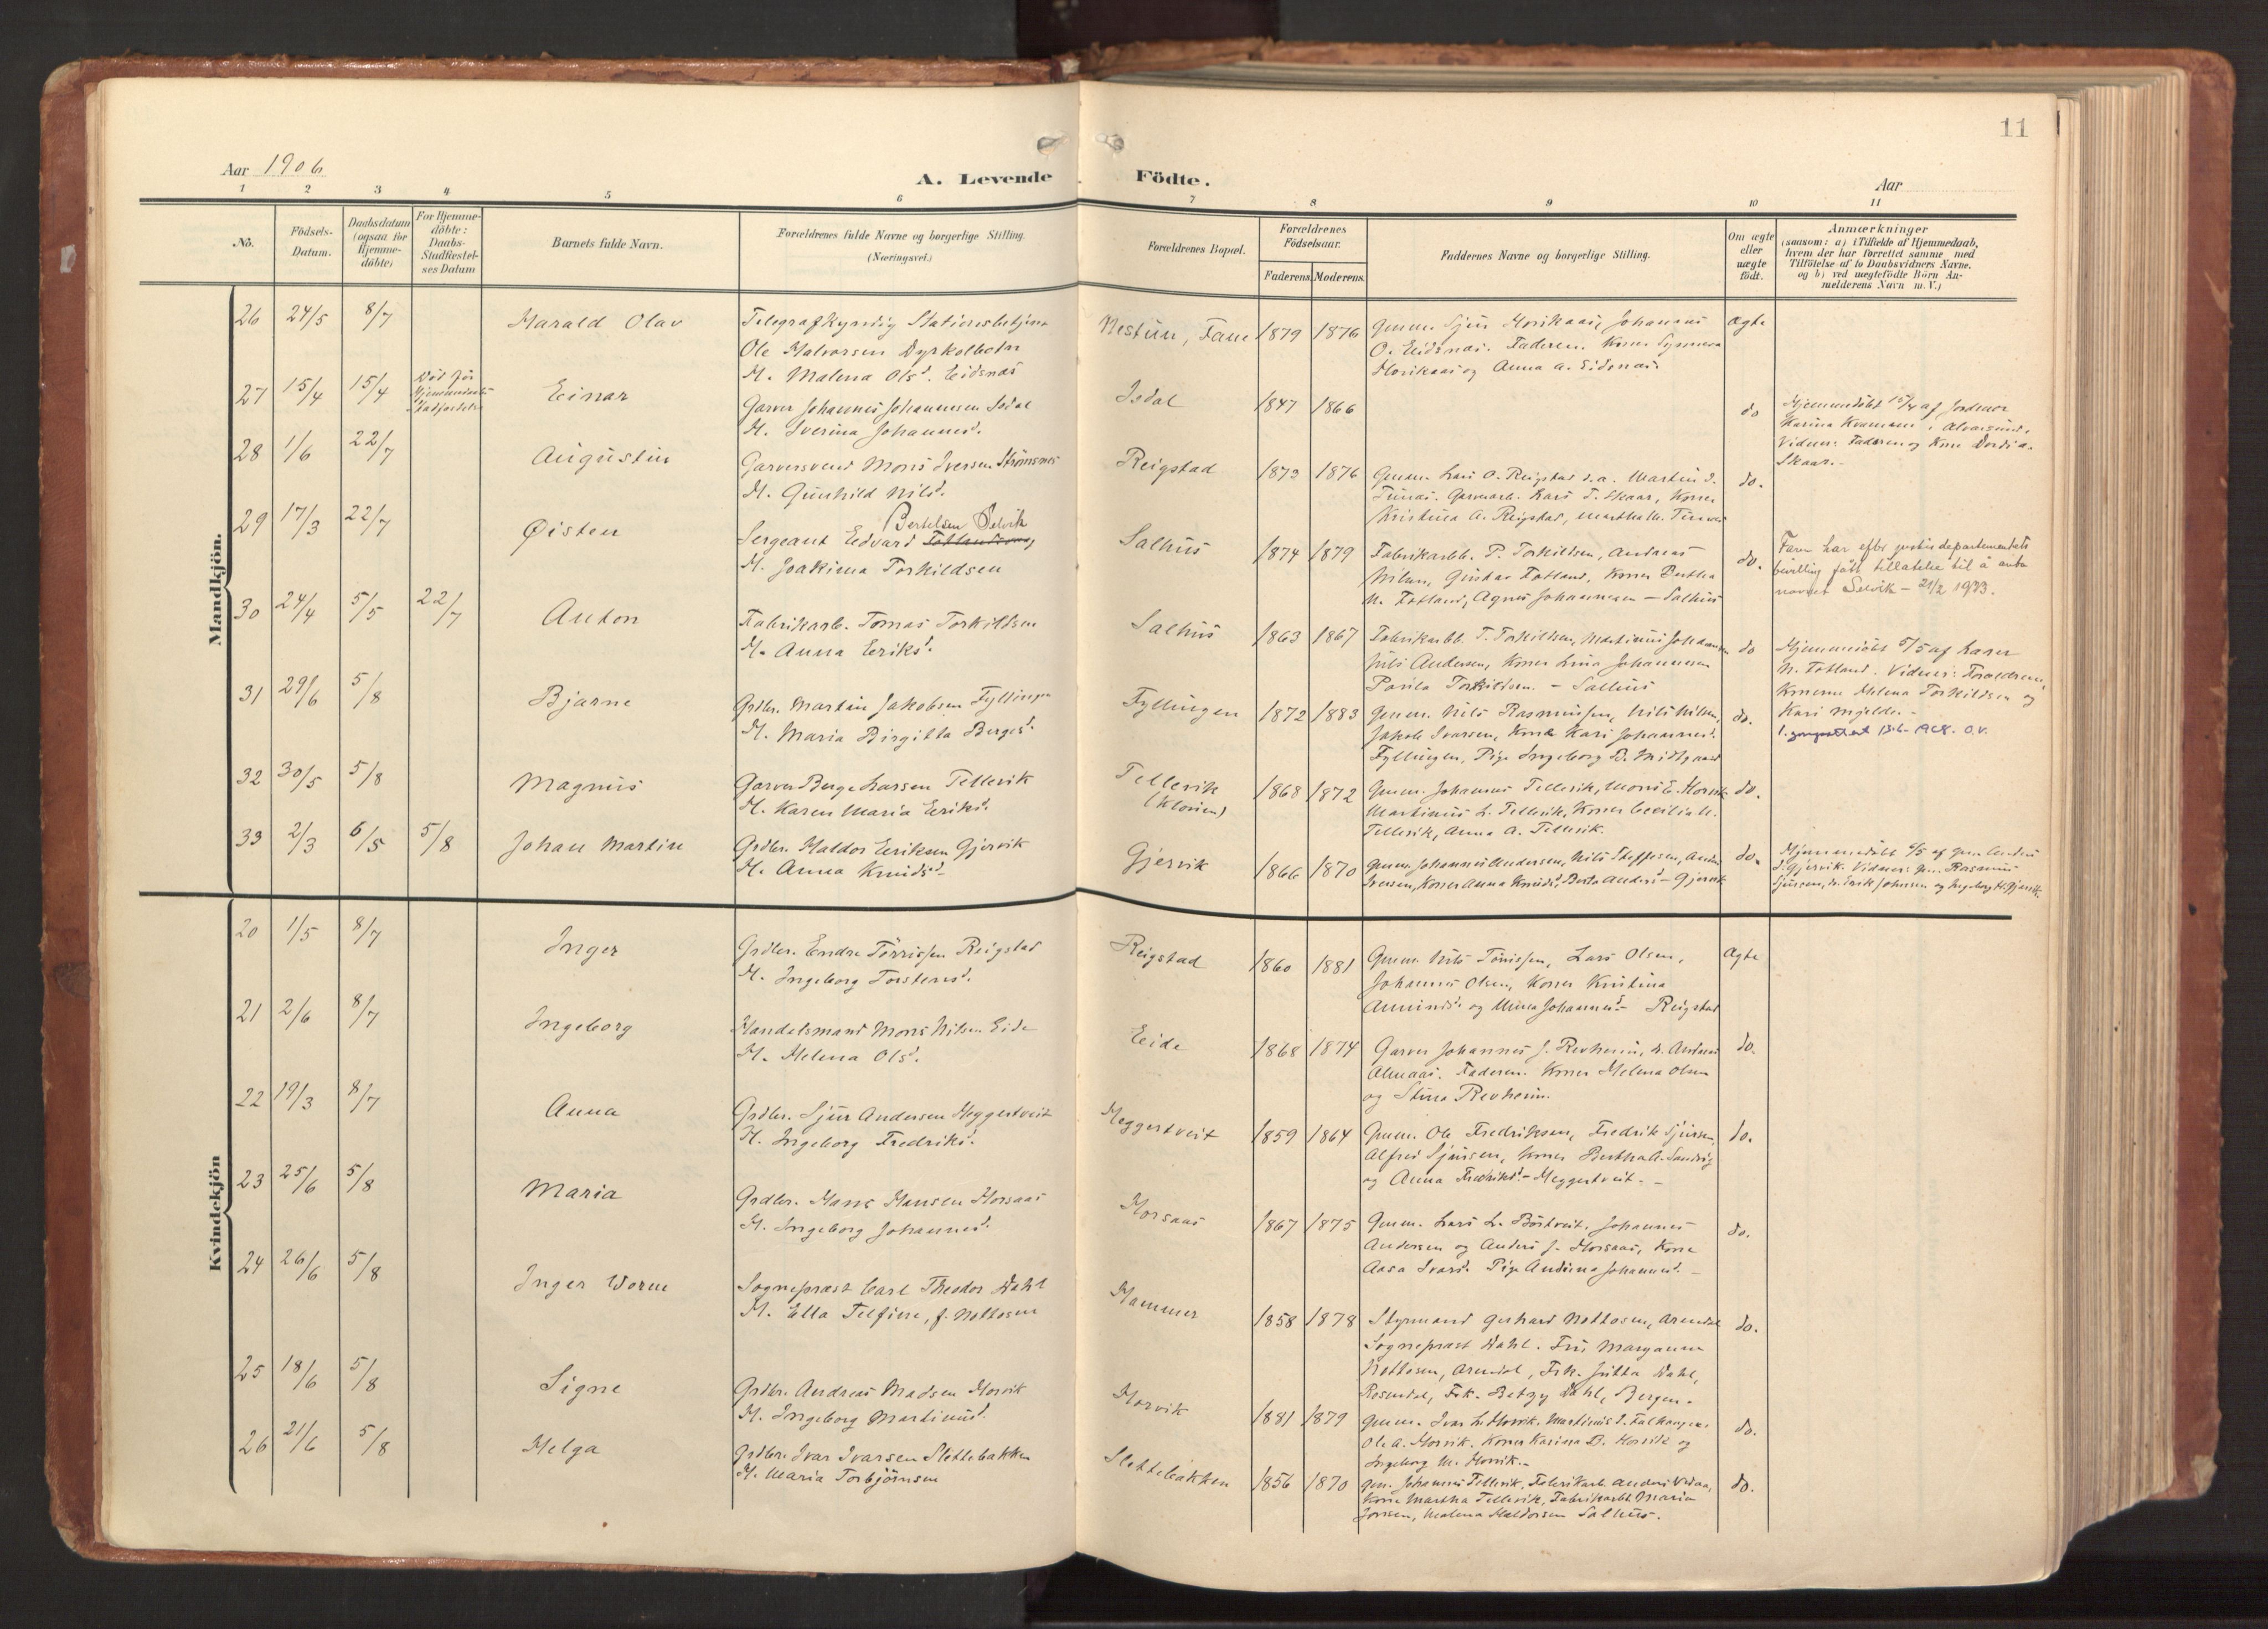 11
Aar 1906
A. Levende Födte.
Aar
1 2 3 4 5 6 7 8 9 10 11
No.
Födsels-
Datum.
Daabsdatum
(ogsaa for
Hjemme-
döbte)
For Hjemme-
döbte:
Daabs-
Stadfæstel-
ses Datum
Barnets fulde Navn.
Forældrenes fulde Navne og borgerlige Stilling.
(Næringsvei.)
Forældrenes Bopæl.
Forældrenes
Födselsaar.
Faderens. Moderens.
Faddernes Navne og borgerlige Stilling.
Om ægte
eller
uægte
födt.
Anmærkninger
(saasom: a) i Tilfælde af Hjemmedaab,
hvem der har forrettet samme med
Tilföielse af to Daabsvidners Navne,
og b) ved uægtefödte Börn An-
melderens Navn m. V.)
Mandkjön.
26 24/5 8/7 Harald Olav
Telegrafkyndig Stationsbetjent
Ole Halvorsen Dyrkolbotn
H. Malena Olsd. Eidsnæs
Nestun, Fane 1879 1876
Gmm. Sjur Horsikaas, Johannes
O. Eidsnæs. Faderen. Koner Synneva
Horsikaas og Anna A. Eidsnæs.
Ægte
27 15/4 15/4
Död för
Hjemmedaabs
Stadfæstelse
Einar
Garver Johannes Johannesen Isdal
H. Sverina Johannesd.
Isdal 1847 1866 do
Hjemmedöbt 15/4 af Jordmor
Karina Kvamme, Alversund.
Vidner: Faderen og Kone Dordia
Skaar.-
28 1/6 22/7 Augustin
Garversvend Mons Iversen Strömsnes
H. Gunhild Nilsd.
Reigstad 1873 1876
Gmm. Lars O. Reigstad s.a. Martin I.
Tunæs. Garverarb. Lars T. Skaar, Koner
Kristina A. Reigstad, Martha M. Tunæs
do.
29 17/3 22/7 Øisten
Bertelsen Selvik
Sergeant Edvard
H. Joakima Torkildsen
Salhus 1874 1879
Fabrikarbb. P. Torkildsen, Andreas
Nilsen, Gustav Totland, Koner Bertha
N. Totland, Agnes Johannesen - Salhus
do.
Faren har efter justisdepartementets
bevilling fått tillatelse til å anta
navnet Selvik - 21/2 1933.
30 24/4 5/5 22/7 Anton
Fabrikarb. Tomas Torkildsen
H. Anna Eriksd.
Salhus 1863 1867
Fabrikarbb. T. Torkildsen, Martinus Johannesen
Nils Andersen, Koner Lina Johannesen
Torkildsen. - Salhus
do
Hjemmedöbt 5/5 af Lærer
N. Totland. Vidner: Forældrene,
Konerne Helena Torkildsen og
Kari Mjelde.-
31 29/6 5/8 Bjarne
Grdbr. Martin Jakobsen Fyllingen
H. Maria Birgitta Bergesd.
Fyllingen 1872 1883
Gmm. Nils Rasmussen, Nils Nilsen,
Jakob Ivarsen, Kone Kari Johannesd.
Fyllingen, Pige Ingeborg B. Midtgaard
do.
32 30/5 5/8 Magnus
Garver Berge Larsen Tellevik
H. Karen Maria Eriksd.
Tellevik
1868 1872
Gmm. Johannes Tellevik, Mons E. Horvik
Martinus L. Tellevik, Koner Cecilia M.
Tellevik, Anna A. Tellevik.
do.
33 2/3 6/5 5/8 Johan Martin
Grdbr. Haldor Eriksen Gjervik
H. Anna Knudsd.
Gjervik 1866 1870
Gmm. Johannes Andersen, Nils Steffesen, Anders
Iversen, Koner Anna Knudsd., Berta Andersd. - Gjervik
do.
Hjemmedöbt 6/5 af Gm. Anders
I. Gjervik. Vidner: Gm. Rasmus
Sjursen, do. Erik Johnsen og Ingeborg H. Gjervik.
Kvindekjön
20 1/5 8/7 Inger
Grdbr. Endre Törrissen Reigstad
H. Ingeborg Torstensd.
Reigstad 1860 1881
Gmm. Nils Törrissen, Lars Olsen,
Johannes Olsen, Koner Kristina
Amundsd. og Anna Johannesd. Reigstad
Ægte
21 2/6 8/7 Ingeborg
Handelsmand Mons Nilsen Eide
H. Helena Olsd.
Eide 1868 1874
Garver Johannes J. Revheim, do. Andreas
Almaas. Faderen. Koner Helena Olsen
og Stina Revheim.
do.
22 19/3 8/7 Anna
Grdbr. Sjur Andersen Heggertveit
H. Ingeborg Fredriksd.
Heggertveit 1859 1864
Gmm. Ole Fredriksen, Fredrik Sjursen,
Alfred Sjursen, Koner Bertha A. Sandvig
og Anna Fredriksd. - Heggertveit. -
do.
23 25/6 5/8 Maria
Grdbr. Hans Hansen Horsaas
H. Ingeborg Johannesd.
Horsaas 1867 1875
Gmm. Lars L. Börtveit, Johannes
Andersen og Anders J. Horsaas, Kone
Aasa Ivarsd. Pige Andrina Johannesd. -
do.
24 26/6 5/8 Inger Worm
Sognepræst Carl Theodor Dahl
H. Ella Telfine, f. Nottosen
Hammer 1858 1878
Styrmand Gerhard Nottosen, Arendal
Sognepræst Dahl. Fru Margaune
Nottosen, Arendal, Frk. Jutta Dahl,
Rosendal, Frk. Betzy Dahl, Bergen.
do.
25 18/6 5/8 Signe
Grdbr. Andreas Madsen Horvik
H. Ingeborg Martinusd.
Horvik 1881 1879
Gmm. Ivar L. Horvik, Martinus I. Falkanger,
Ole A. Horvik. Koner Karina B. Horvik og
Ingeborg M. Horvik.-
do.
26 21/6 5/8 Helga
Grdbr. Ivar Ivarsen Slettebakken
H. Maria Torbjörnsen
Slettebakken 1856 1870
Gm. Johannes Tellevik, Fabrikarb. Anders Vadaa,
Kone Martha Tellevik, Fabrikarbb. Maria
Jonsen, Malena Haldorsen Salhus.
do.